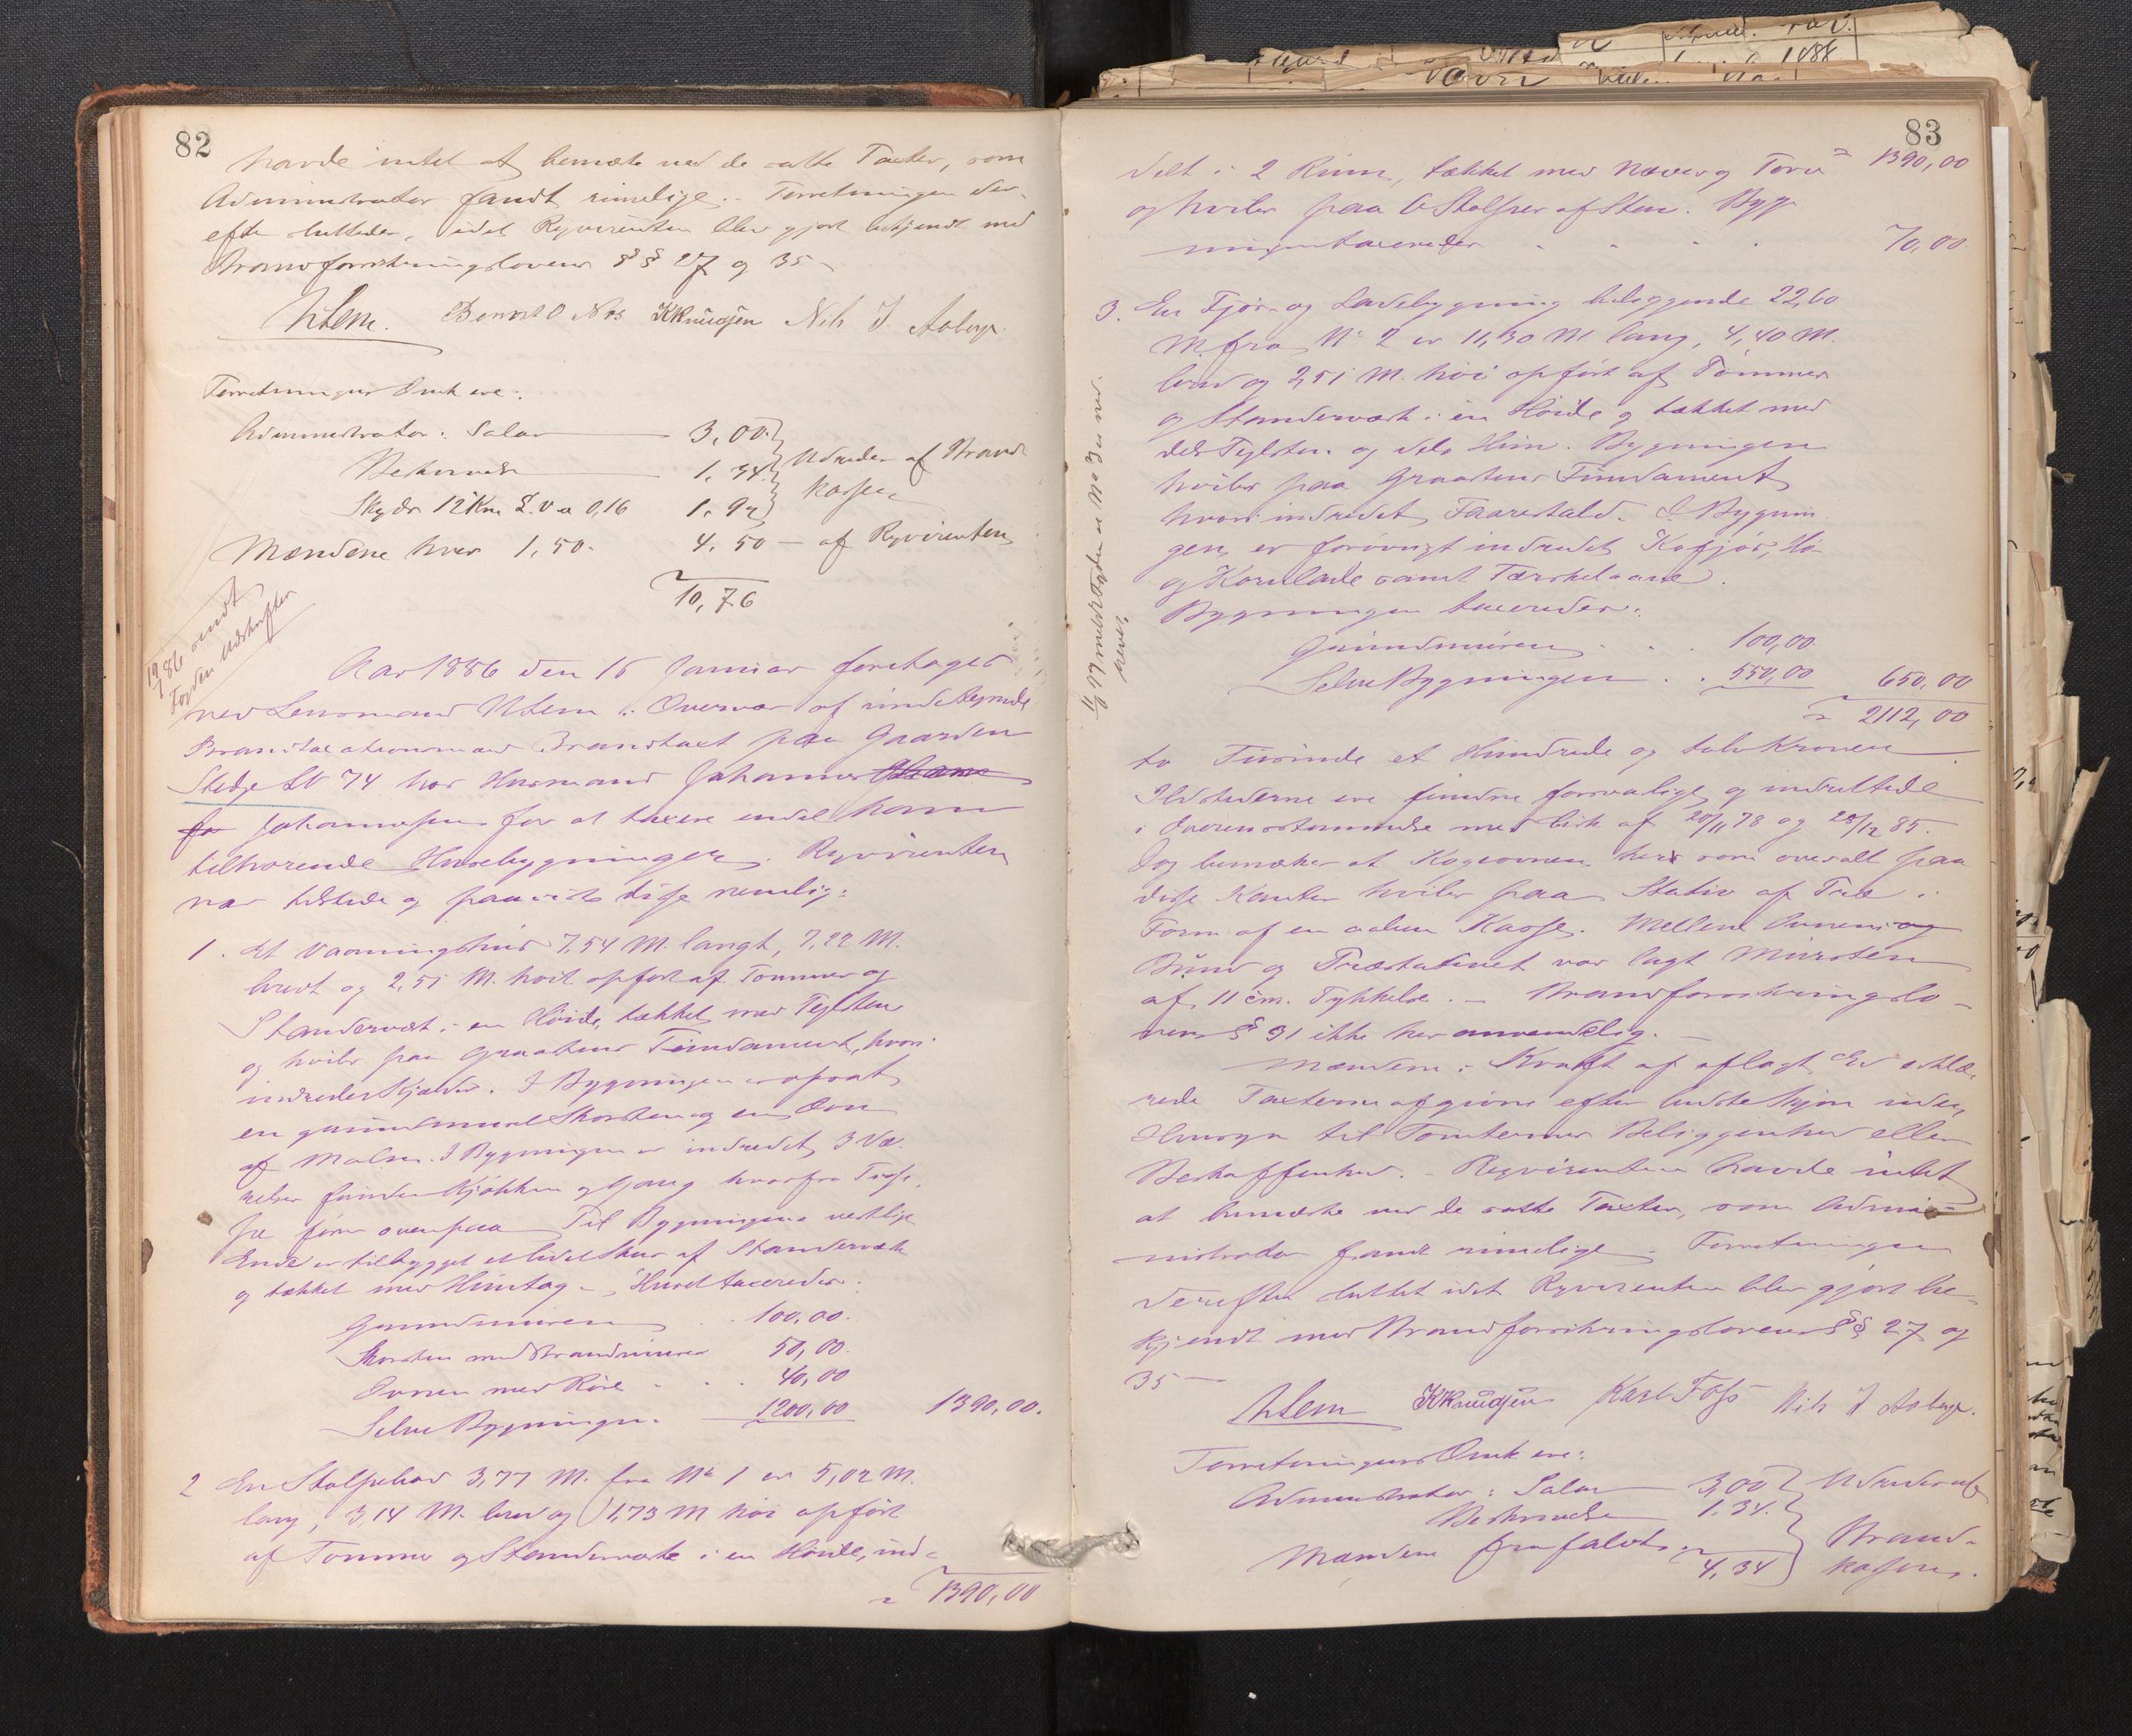 82
havde intet at bemærke ved de satte Taxter, som
Administrator fandt rimelige. - Forretningen der-
efter sluttedes, idet Rqvirenten blev gjort bekjendt med
Brandforsikringslovens §§ 27 og 35 -
NLem. Bernt O Nes KKnudsen Nils J Aaberge.
Forretningens Omk ere:
Administrator: Salær 3,00
Beskrivelse 1,34 Udredes af Brand
Skyds 12 Km L.V a 0,16 1,92 kassen
Mændene hver 1,50. 4,50 - af Rqvirenten
10,76
19/1 86 sendt
Fogden Udskriften
Aar 1886 den 15 Januar foretoges
ved Lensmand NLem i Overvær af undertegnede
Brandtaxationsmænd Brandtaxt paa Gaarden
Stedje LN 74 hos Husmand Johannes
for Johannessen for at taxere endel ham
tilhørende Husebygninger. Rqvirenten
var tilstede og paaviste disse nemlig:
1. Et Vaaningshus 7,54 M. langt, 7,22 M.
bredt og 2,51 M. høit opført af Tømmer og
Standerværk i en Høide, tækket med Teglsten
og hviler paa Graastens Fundament, hvori
indredet Kjælder. I Bygningen er opsat
en grundmuret Skorsten og en Ovn
af Malm. I Bygningen er indredet 3 Væ-
relser foruden Kjøkken og Gang hvorfra Trap-
pe fører ovenpaa Til Bygningens vestlige
Ende er tilbygget et lidet Skur af Standerværk
og tækket med Heltag - Huset taxeredes:
Grundmuren 100,00.
Skorsten med Brandmuren 50,00
Ovnen med Rør 40,00
Selve Bygningen 1200,00 1390,00.
2 En Stolpebod 3,77 M. fra No 1 er 5,02 M.
lang, 3,14 M. bred og 1,73 M høi opført
af Tømmer og Standerværk i en Høide, ind-
1390,00
83
delt i 2 Rum, tækket med Næver og Torv 1390,00
og hviler paa 6 Stolper af Sten. Byg-
ningen taxeredes 70,00
3. En Fjøs- og Ladebygning beliggende 22,60
M. fra No 2 er 11,30 M lang, 4,40 M.
bred og 2,51 M. høi opført af Tømmer
og Standerværk i en Høide og tækket med
dels Teglsten og dels Helle. Bygningen
hviler paa Graastens Fundament
hvori indredet Faarestald. I Bygnin-
gen er forøvrigt indredet Kofjøs, Hø-
og Kornlade samt Tærskelaave.
Bygningen taxeredes:
Grundmuren 100,00
Selve Bygningen 550,00 650,00
2112,00
to Tusinde et Hundrede og tolv Kroner
Ildstederne ere fundne forsvarlige og indrettede
i Overensstemmelse med Cirk af 20/11 78 og 28/12 85.
Jeg bemærker at Kogeovnen her som overalt paa
disse Kanter hviler paa Stativ af Træ i
Form af en aaben Kasse. Mellem Ovnens
Bund og Træstativet var lagt Mursten
af 11 cm. Tykkelse. - Brandforsikringslo-
vens § 31 ikke her anvendelig. -
Mændene i Kraft af aflagt Ed erklæ-
rede Taxterne afgivne efter bedste Skjøn uden
Hensyn til Tomternes Beliggenhed eller
Beskaffenhed. - Rqvirenten havde intet
at bemærke ved de satte Taxter, som Admi-
nistrator fandt rimelige. Forretningen
derefter sluttet idet Rqvirenten blev gjort be-
kjendt med Brandforsikringslovens §§ 27 og
35 -
NLem KKnudsen Karl Foss Nils J Aaberge.
Forretningens Omk ere:
Administrator: Salær 3,00 Udredes af
Beskrivelse 1.34. Brand-
Mændene frafaldt. 4,34 kassen.